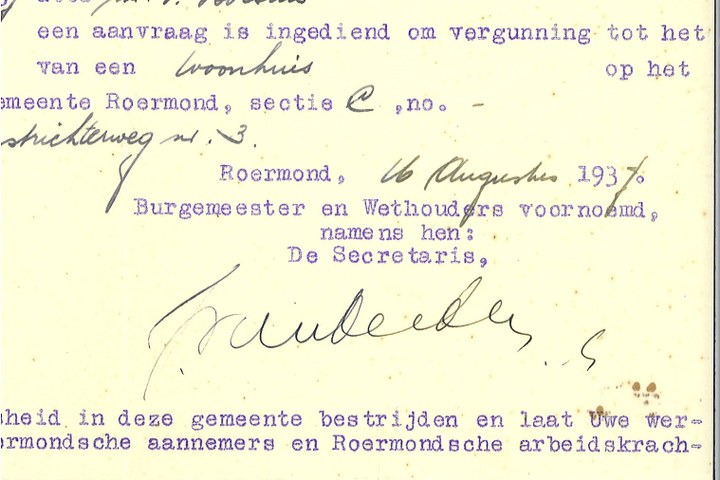 een aanvraag is ingediend om vergunning tot het
van een woonhuis op het
emeente Roermond, sectie C ,no. -
strichterweg nr. 3.
Roermond, 16 Augustus 1937.
Burgemeester en Wethouders voornoemd,
namens hen:
De Secretaris,
sheid in deze gemeente bestrijden en laat Uwe wer-
ormondsche aannemers en Roermondsche arbeidskrach-